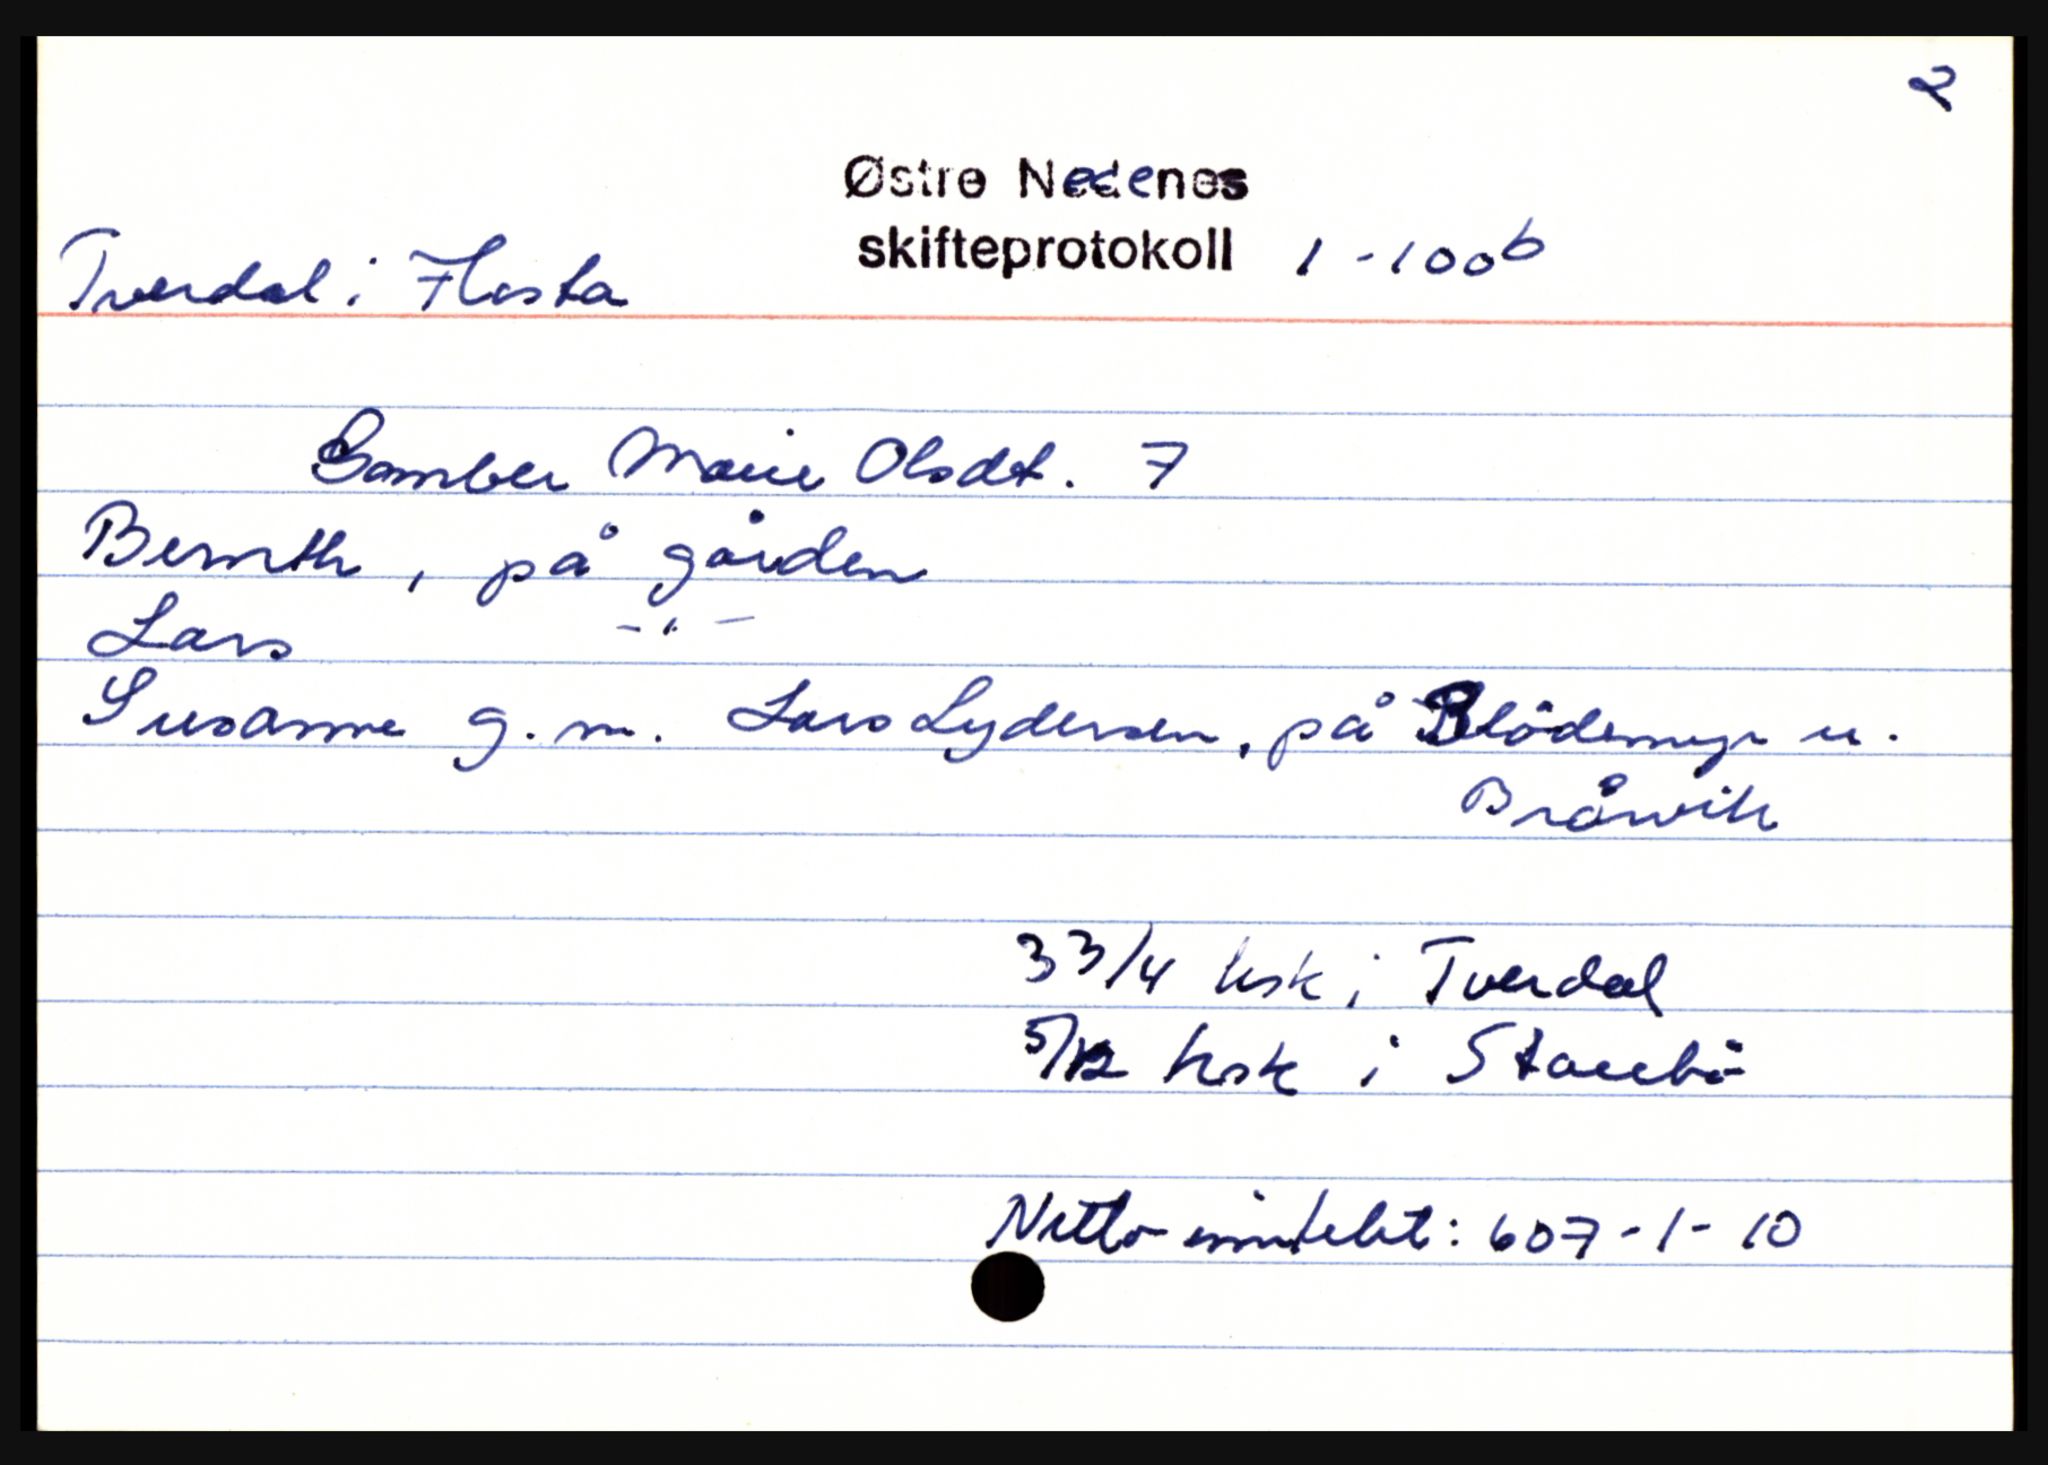 2
Østre Nedenes
skifteprotokoll 1-100b
Tverdal i Flosta
Marie Olsdt. 7
Bernth, på gården
Lars -"-
Susanne g. m. Lars Lydersen, på Blödemyr u.
Bråwik
3 3/4 hsk i Tverdal
5/12 hsk i Staubö
Netto inntekt: 607-1-10